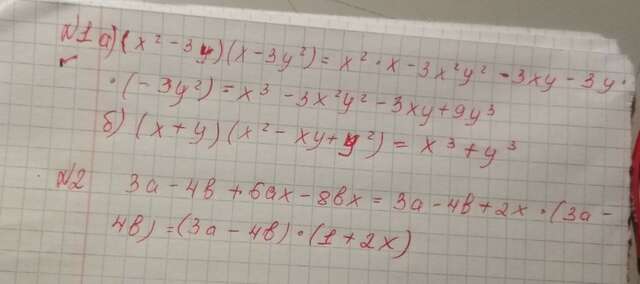 №1 а) (x² - 3y)(x - 3y²) = x² · x - 3x²y² - 3xy - 3y ·
· (- 3y²) = x³ - 3x²y² - 3xy + 9y³
б) (x + y)(x² - xy + y²) = x³ + y³
№2 3a - 4b + 6ax - 8bx = 3a - 4b + 2x · (3a -
4b) = (3a - 4b) · (1 + 2x)